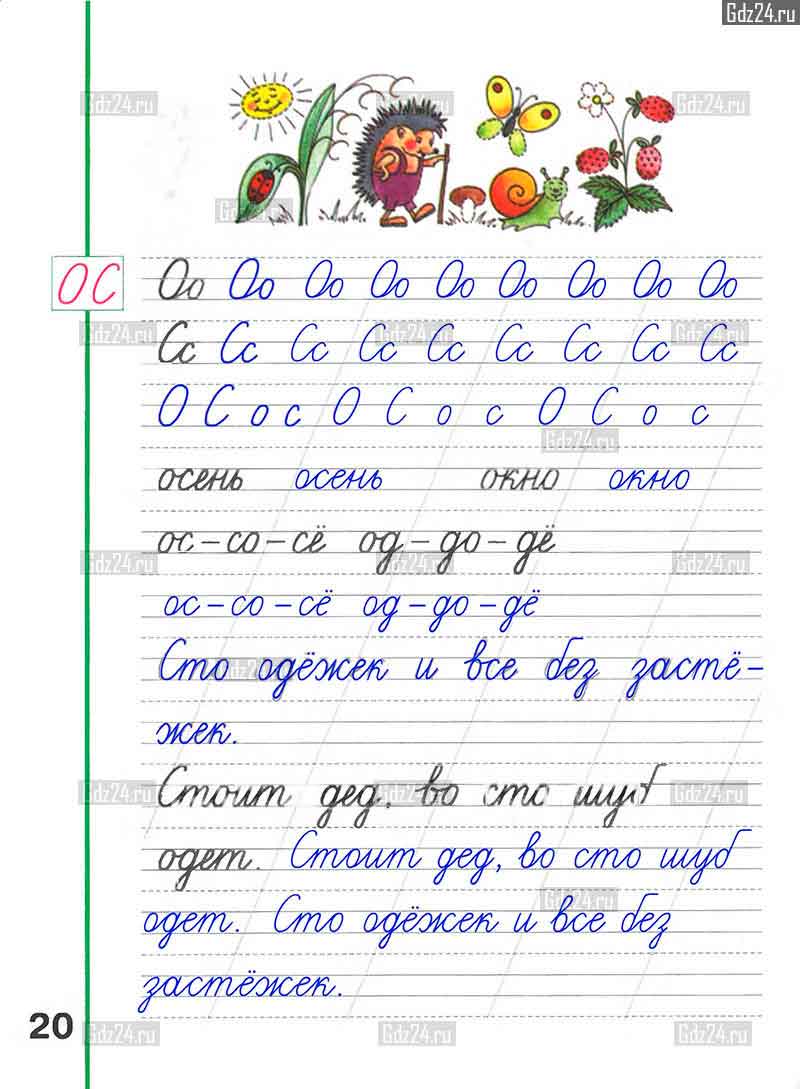 Gdz24.ru
ОС
Оо Оо Оо Оо Оо Оо Оо Оо Оо
Сс Сс Сс Сс Сс Сс Сс Сс Сс
О С о с О С о с О С о с
осень осень окно окно
ос – со – сё од – до – дё
ос – со – сё од – до – дё
Сто одёжек и все без застё–
жек.
Стоит дед, во сто шуб
одет. Стоит дед, во сто шуб
одет. Сто одёжек и все без
застёжек.
20